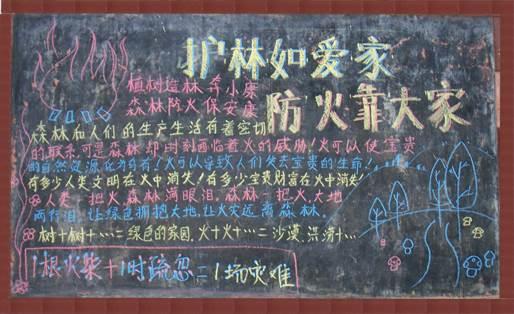 护林如爱家
防火靠大家
植树造林奔小康
森林防火保安康
森林和人们的生产生活有着密切
的联系可是森林却时刻面临着火的威胁!火可以使宝贵
的自然资源化为乌有!火可以导致人们失去宝贵的生命!
有多少人类文明在火中消失!有多少宝贵财富在火中消失!
人类一把火,森林满眼泪。森林一把火,大地
两行泪。让绿色拥抱大地,让火灾远离森林。
树+树+…=绿色的家园,火+火+…=沙漠、洪涝+…
1根火柴+1时疏忽=1场灾难